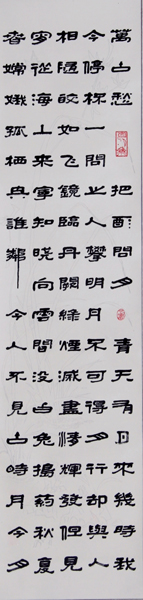 萬古愁 把酒問月 青天有月來幾時我
今停杯一問之人攀明月不可得月行却與人
相隨皎如飞鏡臨丹闕綠煙滅盡清輝發但見
宵從海上來寧知曉向雲間没白兔搗药秋复
春嫦娥孤栖與誰鄰 今人不見古時月今月